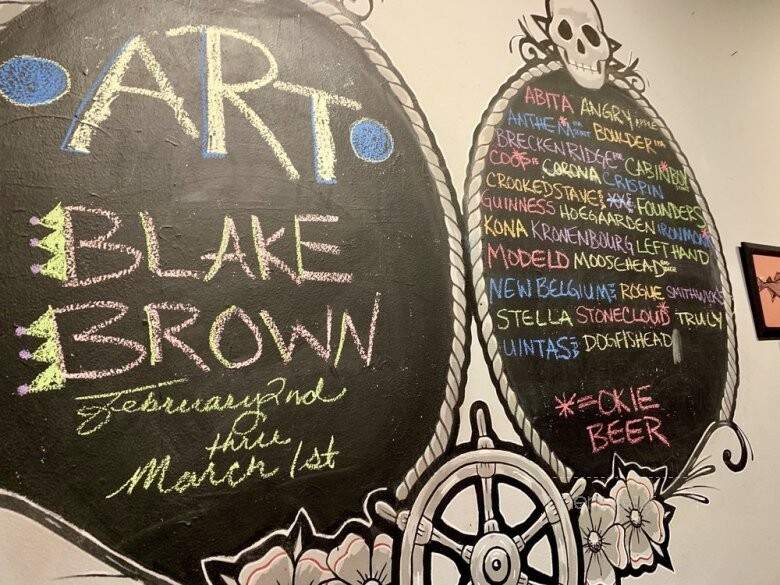 ART
BLAKE
BROWN
February 2nd
thru
March 1st
ABITA ANGRY
ANTHEM BOULDER
BRECKENRIDGE CABINBOY
COOP CORONA CRISPIN
CROOKED STAVE FOUNDERS
GUINNESS HOEGAARDEN IRONMONK
KONA KRONENBOURG LEFT HAND
MODELO MOOSEHEAD
NEW BELGIUM ROGUE SMITHWICKS
STELLA STONECLOUD TRULY
UINTAS DOGFISHEAD
*=OKIE
BEER